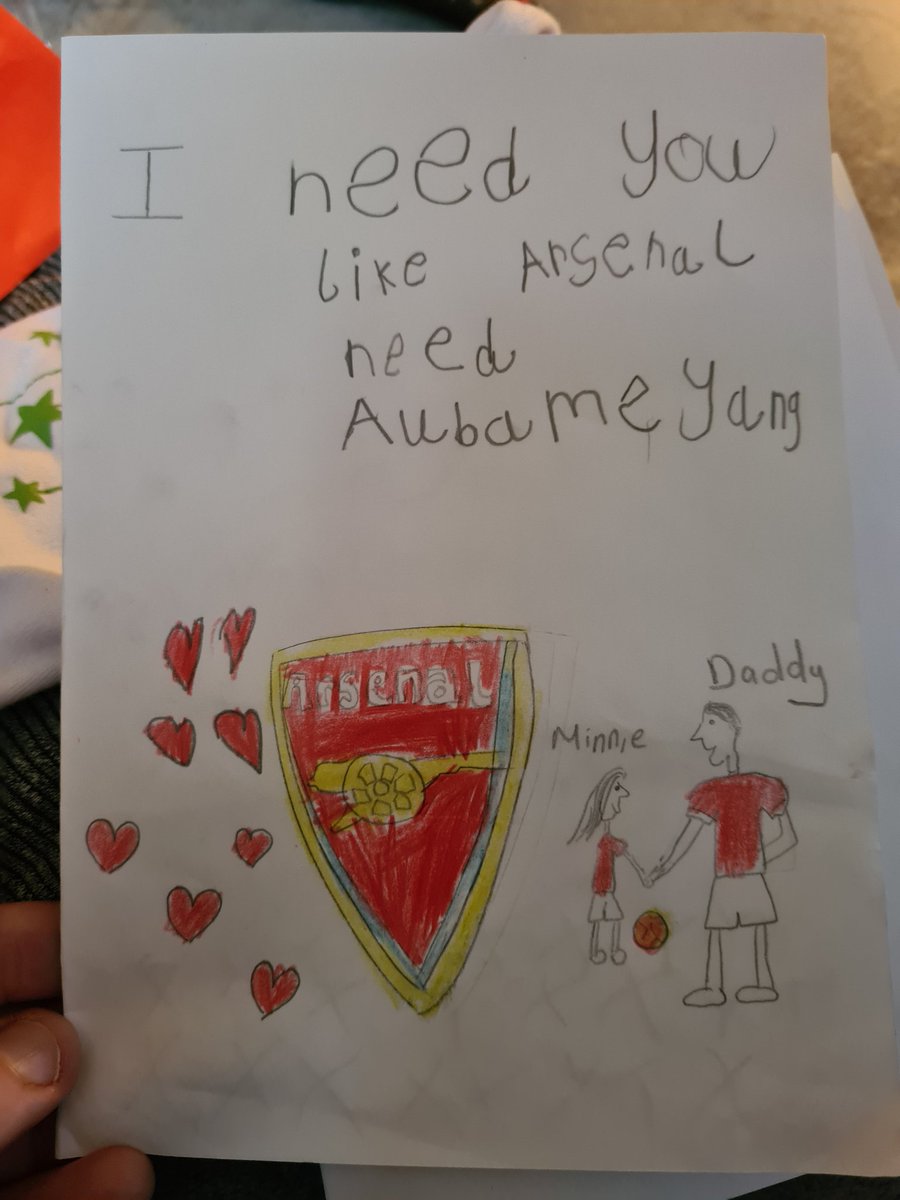 I need you
like Arsenal
need
Aubameyang
Arsenal
Minnie
Daddy